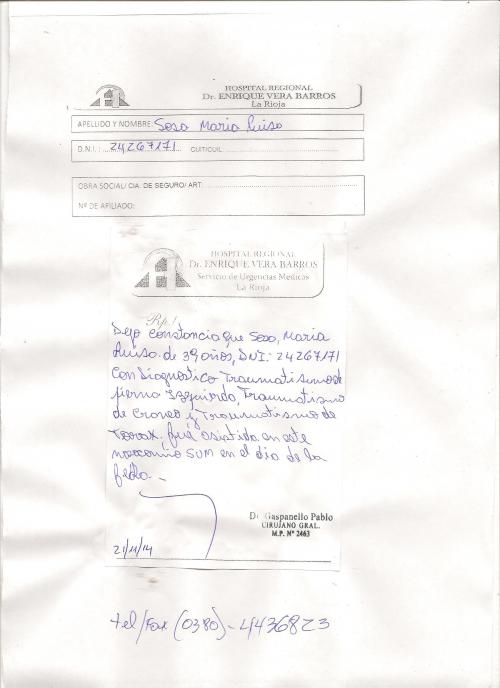 HOSPITAL REGIONAL
Dr. ENRIQUE VERA BARROS
La Rioja
APELLIDO Y NOMBRE: Sosa Maria Luisa
D.N.I.: 24267171 CUIT/CUIL:
OBRA SOCIAL/ CIA. DE SEGURO/ ART:
Nº DE AFILIADO:
HOSPITAL REGIONAL
Dr. ENRIQUE VERA BARROS
Servicio de Urgencias Médicas
La Rioja
Rp./
Dejo constancia que Sosa, Maria
Luisa de 39 años, DNI: 24267171
Con Diagnostico Traumatismo de
pierna Izquierda, Traumatismo
de Craneo y Traumatismo de
Torax, fue asistida en este
nosocomio SUM en el dia de la
fecha.-
Dr. Gaspanello Pablo
CIRUJANO GRAL.
M.P. Nº 2463
21/11/14
tel/Fax (0380)-4436823